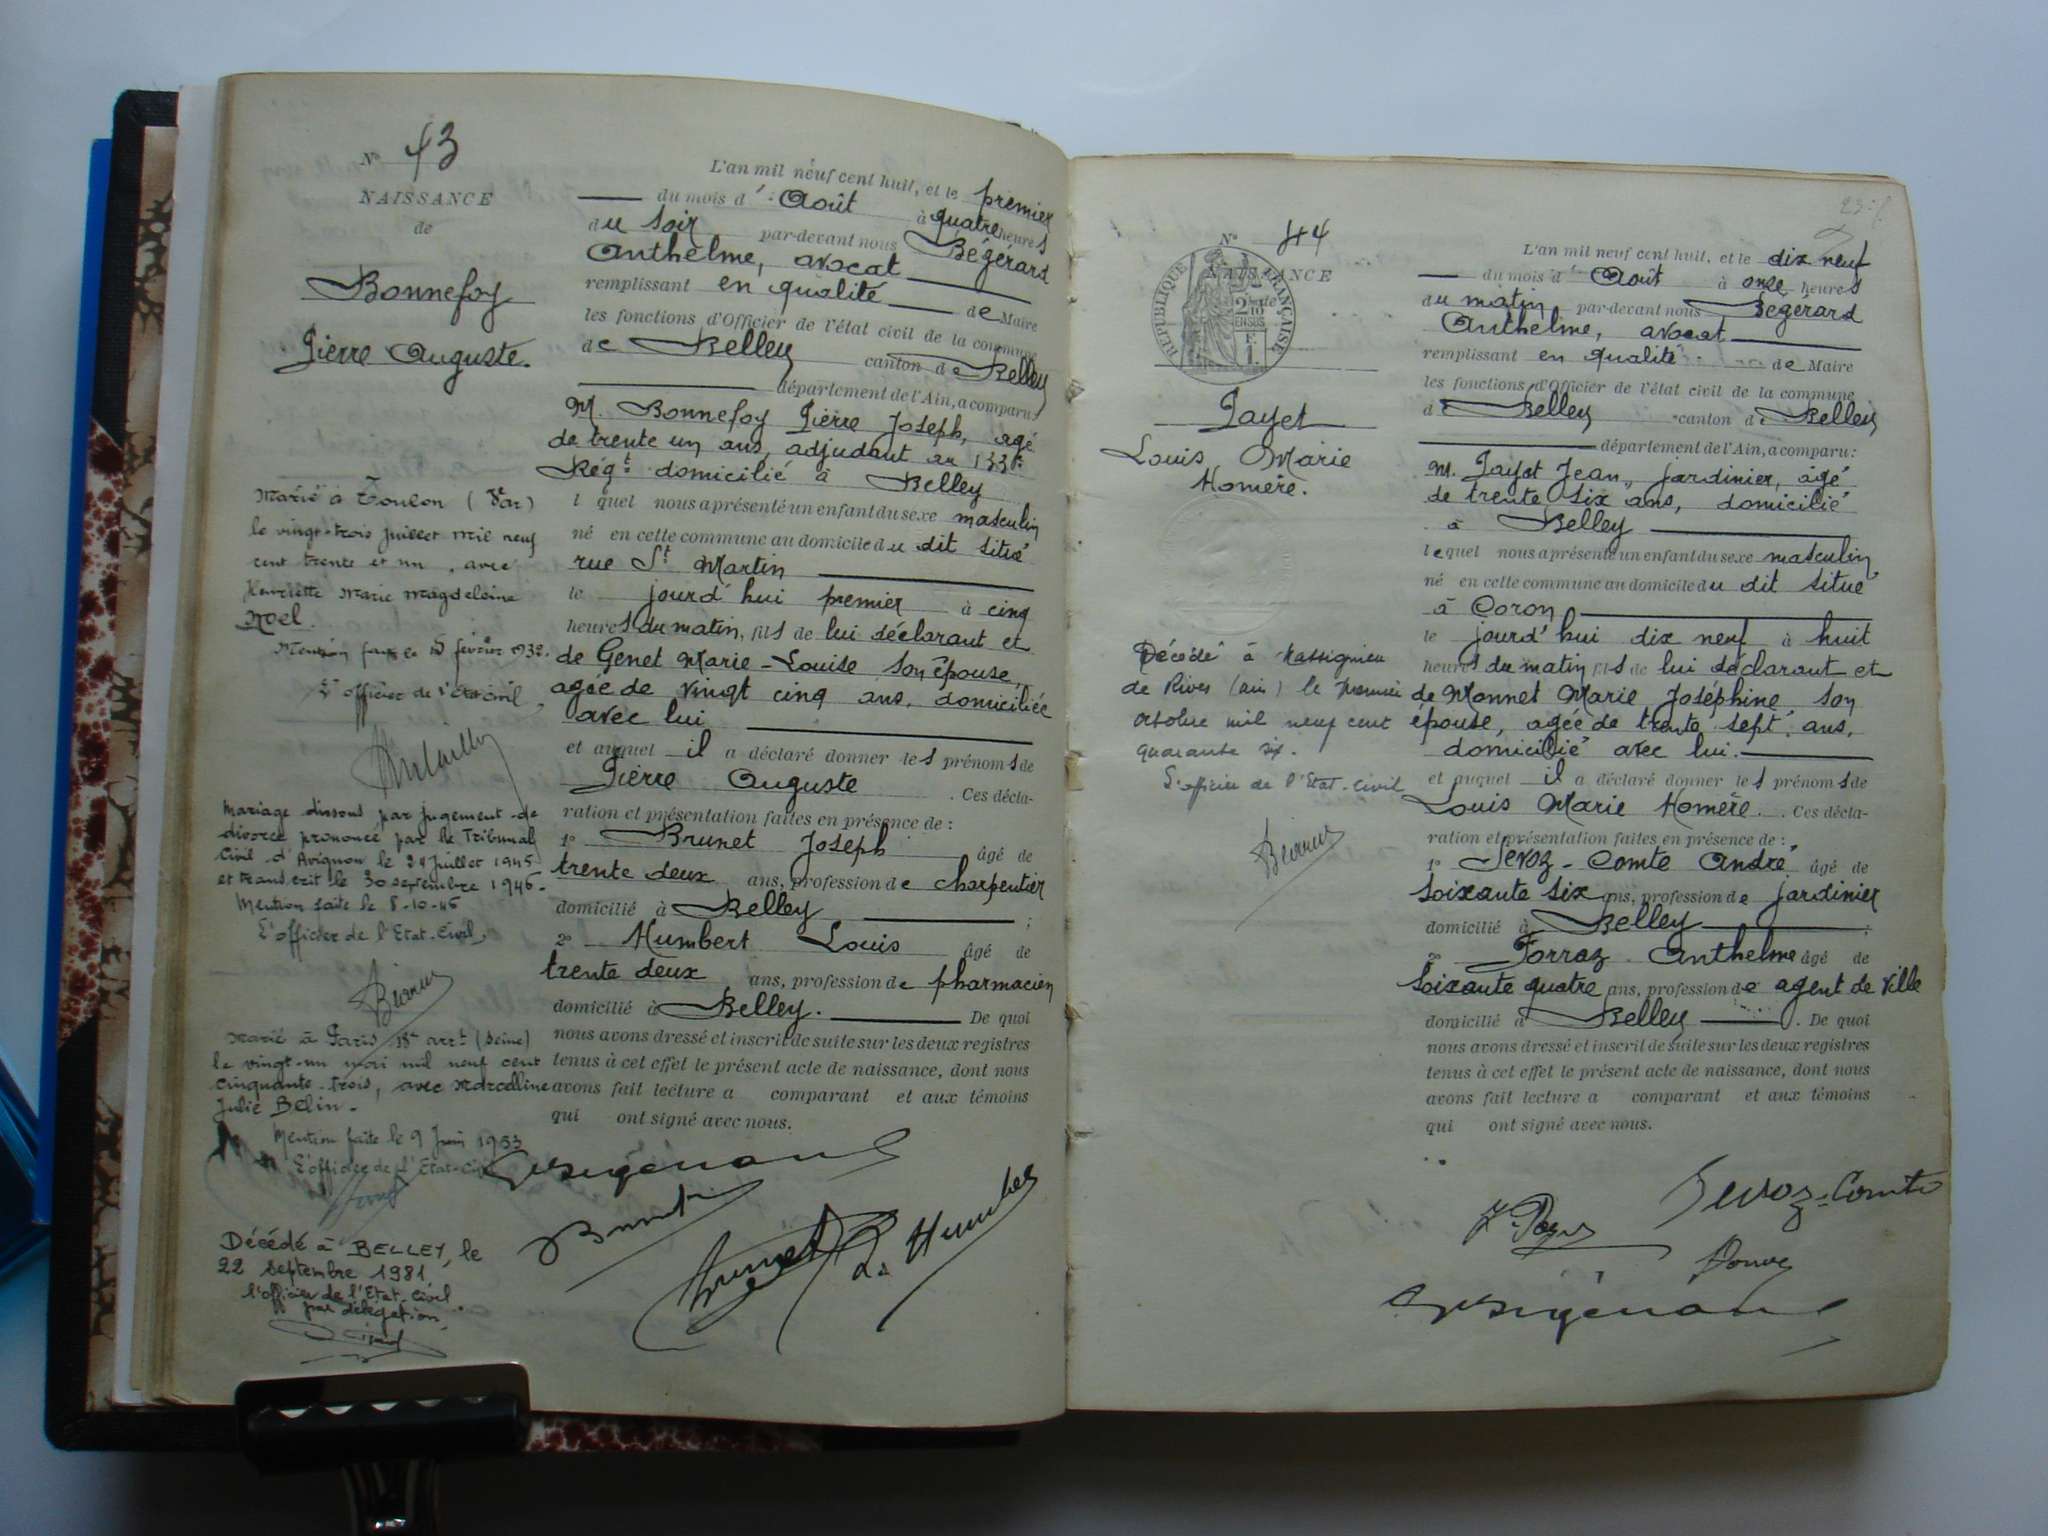 N° 43
NAISSANCE
de
Bonnefoy
Pierre Auguste.
Marié à Toulon (Var)
le vingt-trois juillet mil neuf
cent trente et un, avec
Henriette Marie Magdeleine
Noel.
Mention faite le 15 février 1932.
L'officier de l'état civil,
Mariage dissous par jugement de
divorce prononcé par le Tribunal
Civil d'Avignon le 24 Juillet 1945
et transcrit le 30 septembre 1946.
Mention faite le 8-10-46
L'officier de l'Etat-Civil,
Marié à Paris 18e arrt (Seine)
le vingt-un mai mil neuf cent
cinquante-trois, avec Marcelline
Julie Belin.
Mention faite le 9 Juin 1953
L'officier de l'Etat-Civil
Décédé à BELLEY, le
22 septembre 1981
l'officier de l'Etat-Civil
par délégation,
L'an mil neuf cent huit, et le premier
du mois d'Août à quatre heures
du soir par-devant nous Bégérard
Anthelme, avocat
remplissant en qualité de Maire
les fonctions d'Officier de l'état civil de la commune
de Belley canton de Belley
département de l'Ain, a comparu:
M. Bonnefoy Pierre Joseph, agé
de trente un ans, adjudant au 133e
Régt domicilié à Belley
lequel nous a présenté un enfant du sexe masculin
né en cette commune au domicile du dit situé
rue St Martin
le jourd'hui premier à cinq
heures du matin, fils de lui déclarant et
de Genet Marie-Louise son épouse,
agée de vingt cinq ans, domiciliée
avec lui
et auquel il a déclaré donner les prénoms de
Pierre Auguste . Ces décla-
ration et présentation faites en présence de :
1° Brunet Joseph âgé de
trente deux ans, profession de charpentier
domicilié à Belley ;
2° Humbert Louis âgé de
trente deux ans, profession de pharmacien
domicilié à Belley. De quoi
nous avons dressé et inscrit de suite sur les deux registres
tenus à cet effet le présent acte de naissance, dont nous
avons fait lecture a comparant et aux témoins
qui ont signé avec nous.
23
N° 44
NAISSANCE
RÉPUBLIQUE FRANÇAISE
2/10 EN SUS
Payet
Louis Marie
Homère.
Décédé à Massignieu
de Rives (Ain) le premier
octobre mil neuf cent
quarante six.
L'officier de l'Etat-Civil
L'an mil neuf cent huit, et le dix neuf
du mois d'Août à onze heures
du matin par-devant nous Bégérard
Anthelme, avocat
remplissant en qualité de Maire
les fonctions d'Officier de l'état civil de la commune
de Belley canton de Belley
département de l'Ain, a comparu:
M. Payet Jean, jardinier, âgé
de trente six ans, domicilié
à Belley
lequel nous a présenté un enfant du sexe masculin
né en cette commune au domicile du dit situé
à Coron
le jourd'hui dix neuf à huit
heures du matin fils de lui déclarant et
de Monnet Marie Joséphine son
épouse, agée de trente sept ans,
domicilié avec lui.
et auquel il a déclaré donner les prénoms de
Louis Marie Homère . Ces décla-
ration et présentation faites en présence de :
1° Sevoz-Comte André âgé de
soixante six ans, profession de jardinier
domicilié à Belley ;
2° Forraz Anthelme âgé de
soixante quatre ans, profession de agent de ville
domicilié à Belley . De quoi
nous avons dressé et inscrit de suite sur les deux registres
tenus à cet effet le présent acte de naissance, dont nous
avons fait lecture a comparant et aux témoins
qui ont signé avec nous.
Sevoz-Comte